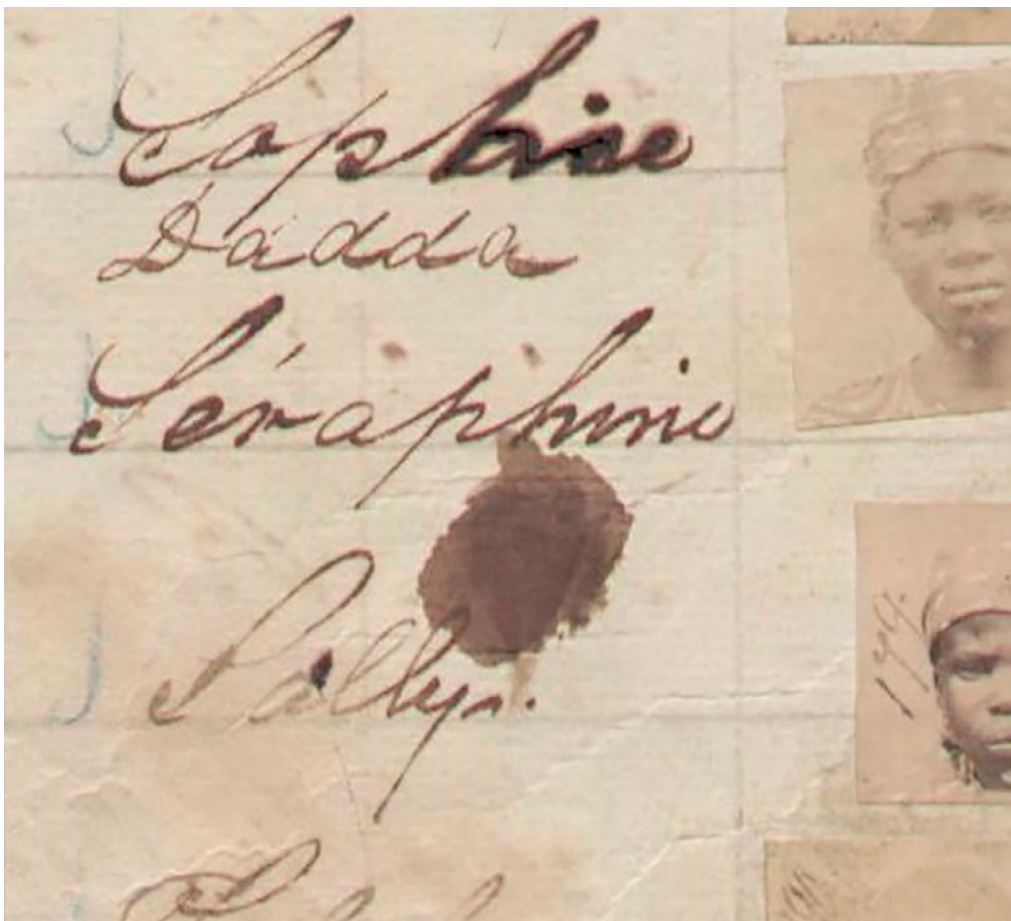 Sophie
Dadda
Séraphine
Sally.
179.